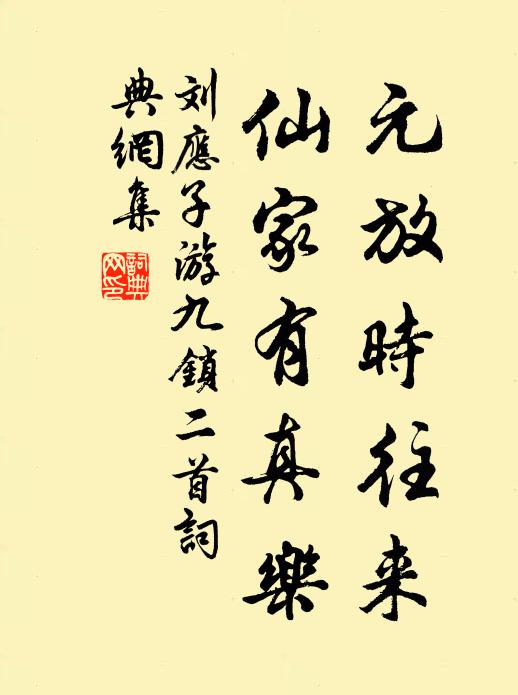 元放時往来
仙家有真樂
刘應子游九鎖二首詞
典網集
詞典网印